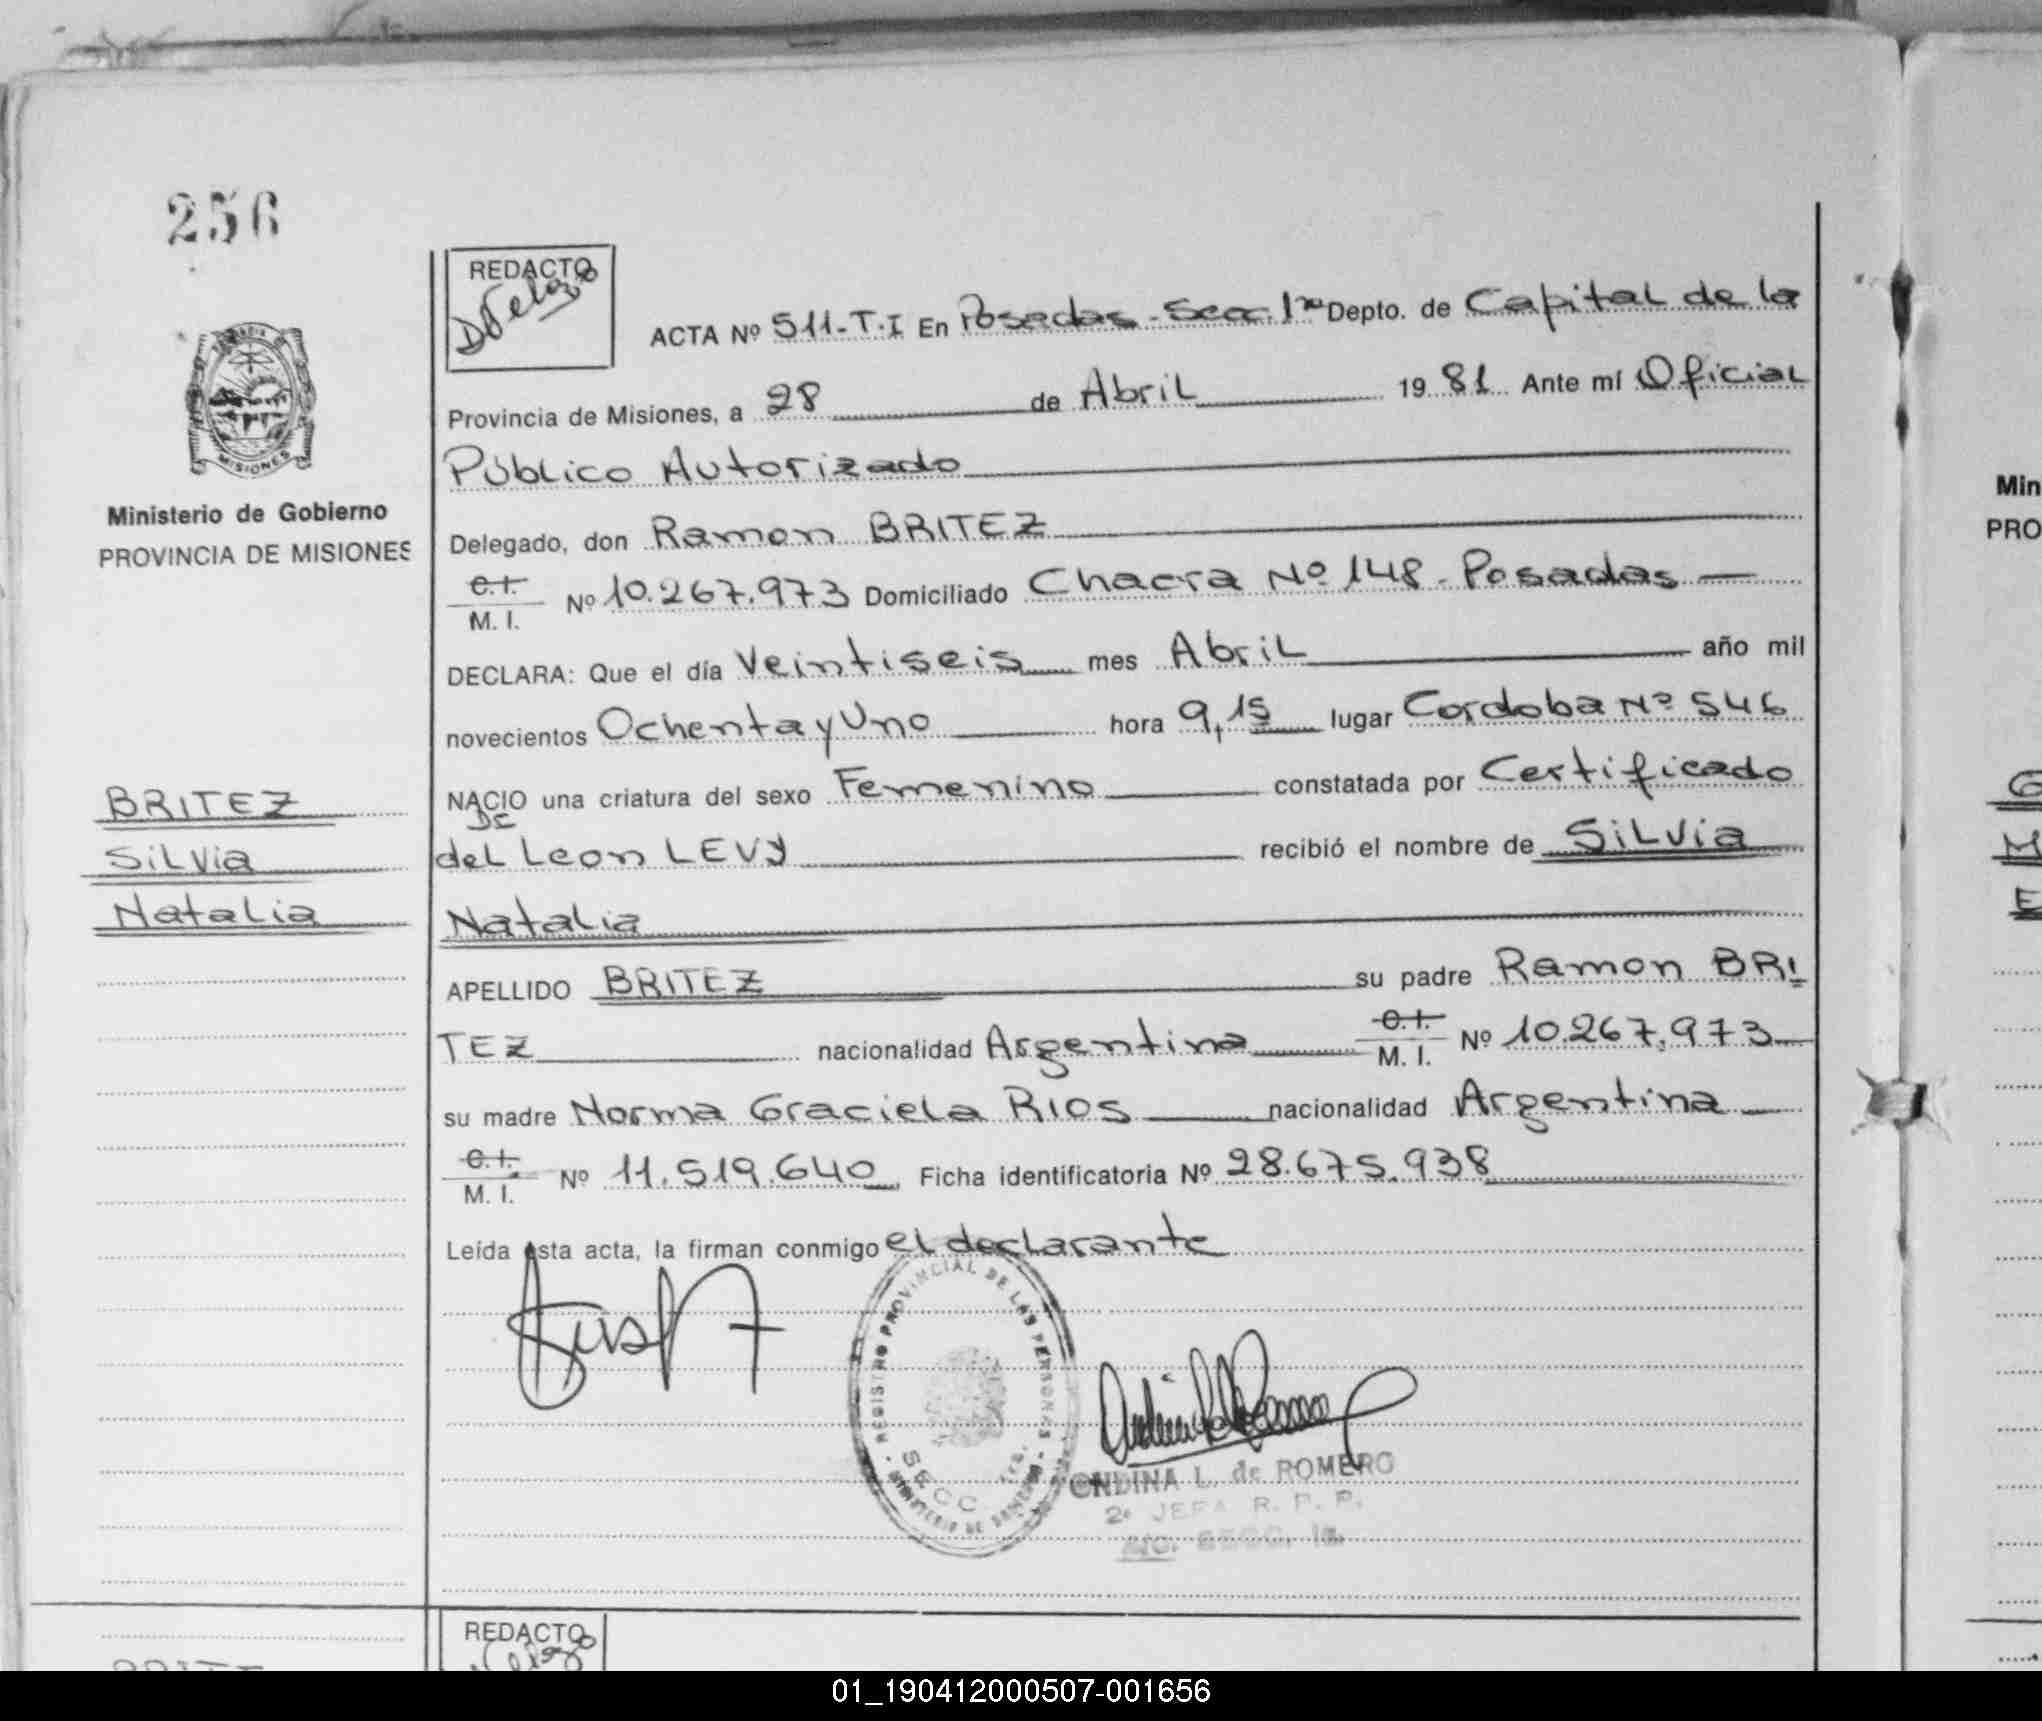 256
REDACTO
ACTA Nº 511-T.I En Posadas - Secc. 1ra Depto. de Capital de la
Provincia de Misiones, a 28 de Abril 1981 Ante mí Oficial
Público Autorizado
Delegado, don Ramon BRITEZ
C.I. M. I. Nº 10.267.973 Domiciliado Chacra Nº 148 - Posadas
DECLARA: Que el día Veintiseis mes Abril año mil
novecientos Ochenta y Uno hora 9,15 lugar Cordoba Nº 546
NACIO una criatura del sexo Femenino constatada por Certificado
De
del Leon LEVY recibió el nombre de Silvia
Natalia
APELLIDO BRITEZ su padre Ramon BRI
TEZ nacionalidad Argentina C.I. M. I. Nº 10.267.973
su madre Norma Graciela RIOS nacionalidad Argentina
C.I. M. I. Nº 11.519.640 Ficha identificatoria Nº 28.675.938
Leída esta acta, la firman conmigo el declarante
REGISTRO PROVINCIAL DE LAS PERSONAS
SECC. 1ra.
MINISTERIO DE GOBIERNO
ONDINA L. de ROMERO
2ª JEFA R. P. P.
A/C. SECC. 1a.
MISIONES
Ministerio de Gobierno
PROVINCIA DE MISIONES
BRITEZ
Silvia
Natalia
REDACTO
Min
PRO
G
M
E
01_190412000507-001656